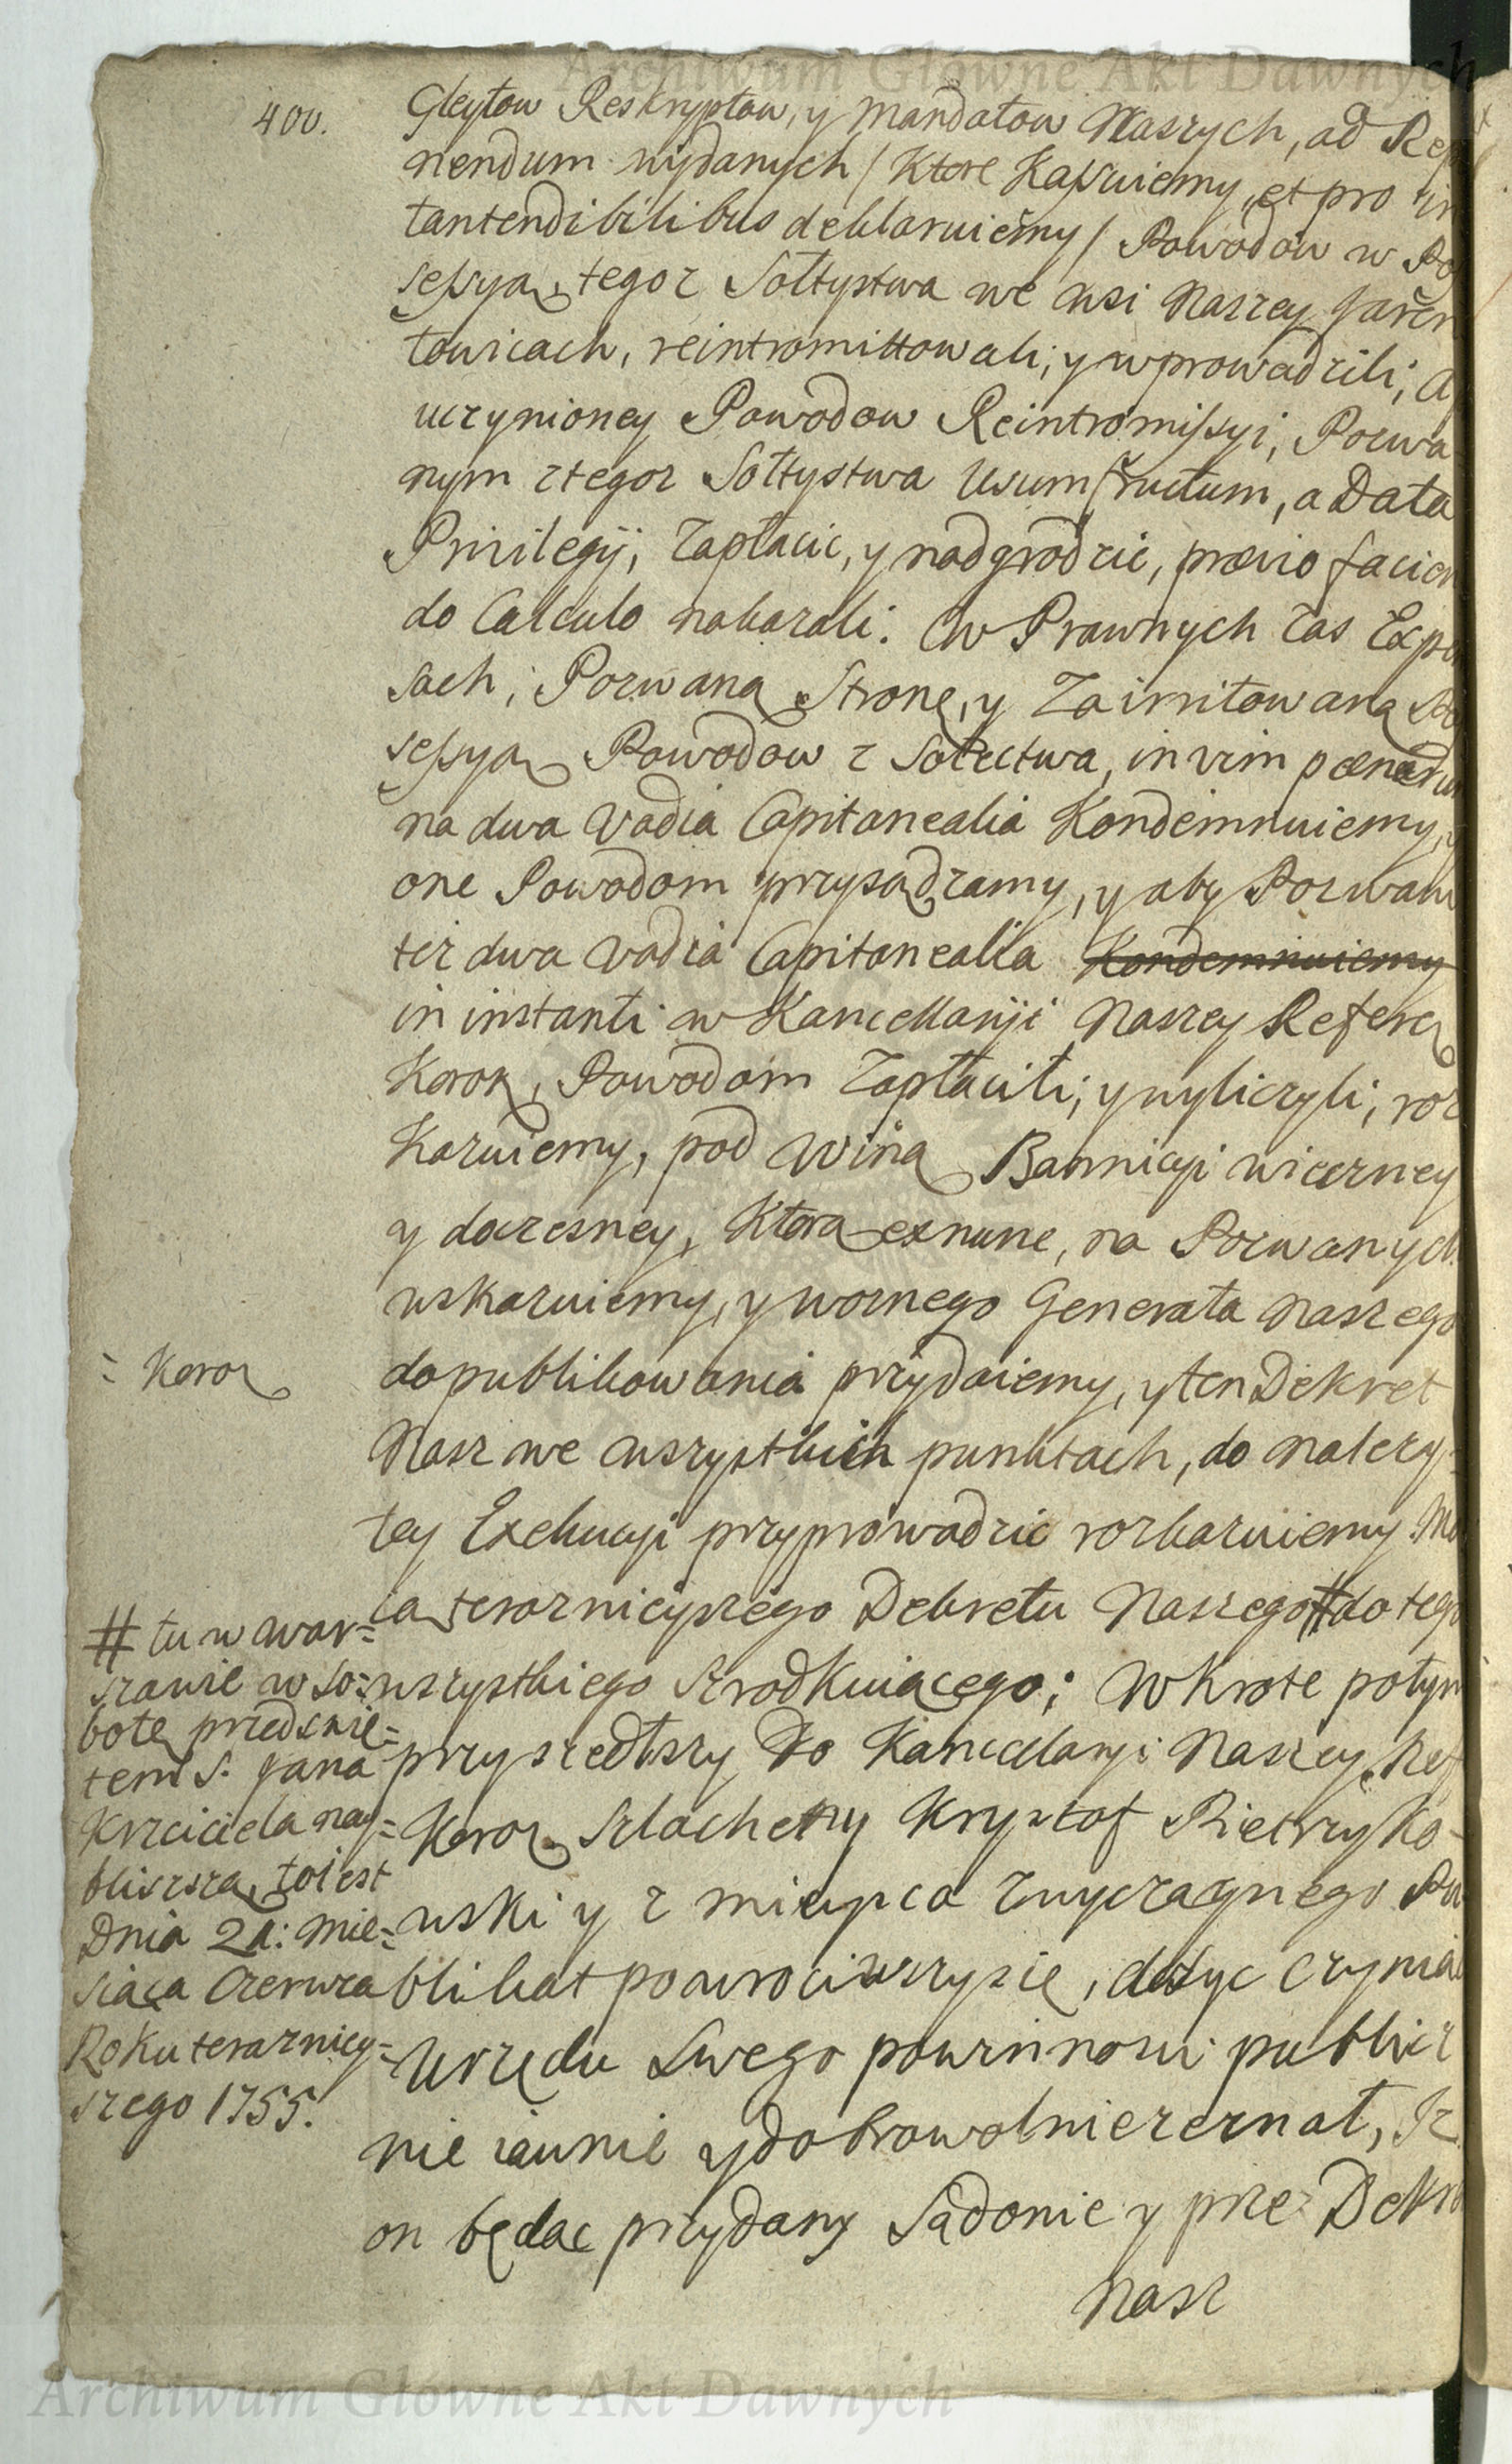 Archiwum Główne Akt Dawnych
400.
Gleytow Reskryptow, y Mandatow Naszych, ad Rep
nendum wydanych / Ktore Kassuiemy, et pro in
tantendibilibus deklaruiemy / Powodow w Po
sessyą, tegoz Sołtystwa we wsi Naszey Jaren
towicach, reintromittowali, y wprowadzili; A
uczynioney Powodow Reintromissyi, Pozwa
nym z tegoz Sołtystwa Usumfructum, a Data
Privilegij, Zapłacic, y nadgrodzic, prævio facien
do Calculo nakazali. W Prawnych zas Expen
sach, Pozwaną Stronę, y Zaimitowaną Po
sessyą Powodow z Sołectwa, in vim pœnarum
na dwa Vadia Capitanealia Kondemnuiemy, y
one Powodom przysądzamy, y aby Pozwani
też dwa Vadia Capitanealia Kondemnuiemy
in instanti w Kancellaryi Naszey Referą
Koroņ, Powodom Zapłacili, y wyliczyli, roz
Kazuiemy, pod Winą Bannicyi wieczney
y doczesney, Ktorą ex nunc, na Pozwanych
wskazuiemy, y woznego Generała Naszego
= Koroņ
do publikowania przydaiemy, y ten Dekret
Nasz we wszystkich punktach, do należy-
tey Exekucyi przyprowadzic rozkazuiemy Mo
cą teraznieyszego Dekretu Naszego # do tego
wszystkiego Srodkuiącego; Wkrotce potym
przyszedłszy Do Kancelaryi Naszey Ref
Koroņ Szlachetny Krysztof Pietrzyko-
wski y z mieysca zwyczaynego Pu
blikat powrociwszy sie, dosyc czyniąc
Urzędu Swego powinnosci publicz
nie iawnie y dobrowolnie zeznał, Jz
on będąc przydany Sądonie y prze Dekre
Nasz
# tu w War=
szawie w So=
botę przed swię=
tem S. Jana
Krzciciela nay=
bliższą, to iest
Dnia 21: Mie=
siąca Czerwca
Roku terazniey=
szego 1755.
Archiwum Główne Akt Dawnych